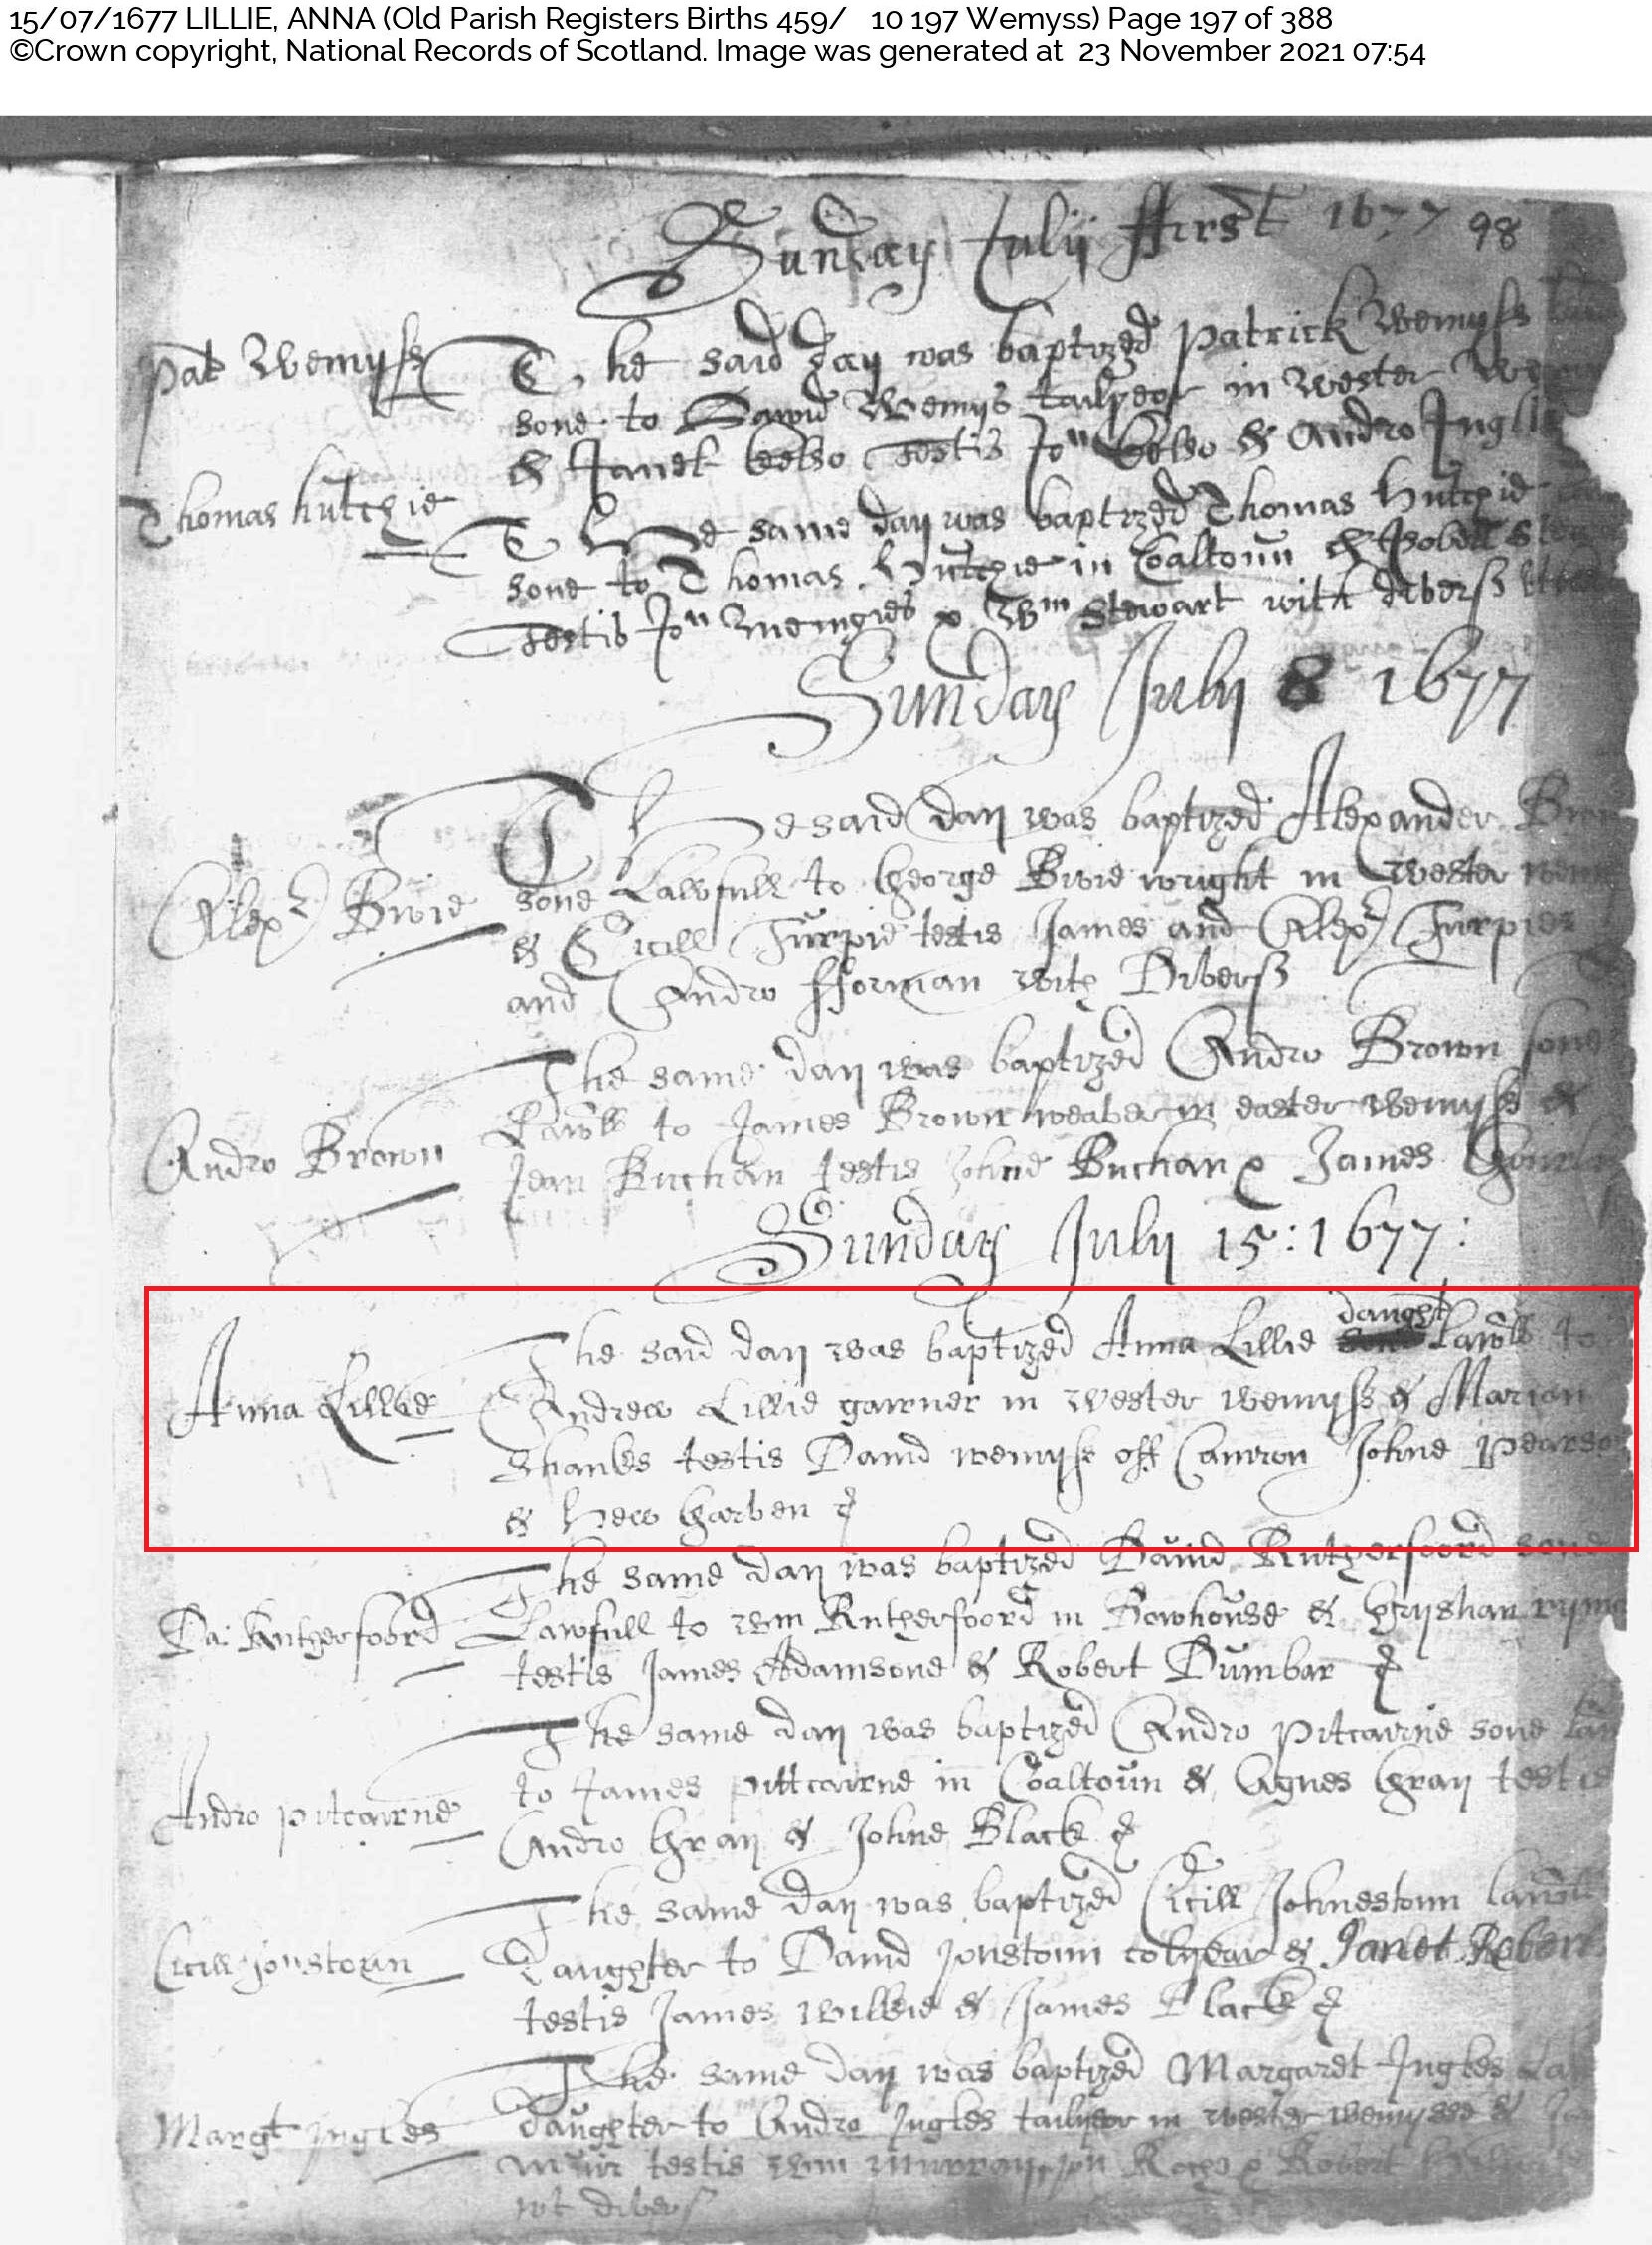 15/07/1677 LILLIE, ANNA (Old Parish Registers Births 459/ 10 197 Wemyss) Page 197 of 388
©Crown copyright, National Records of Scotland. Image was generated at 23 November 2021 07:54
Sunday Julij ffirst 1677 98
Pat Wemyss
The said day was baptized Patrick Wemyss
sone to David Wemys tailyeor in Wester
& Janet kelso Testis Jon kelso & Andro Inglis
Thomas hutchie
The same day was baptized Thomas Hutchie
sone to Thomas Hutchie in Coaltoun & Isobell
Testis Jon & Wm Stewart with diverss
Sunday July 8 1677
The said day was baptized Alexander
Alexr Bivie
sone Lawfull to George Bivie wright in Wester
& Cicill Turpie testis James and Alexr Turpies
and Andro fforman with Diverss
The same day was baptized Andro Brown sone
Andro Brown
Lawll to James Brown weaver in easter wemyss &
Jean Buchan testis Johne Buchan & James
Sunday July 15: 1677:
Anna Lillie
The said day was baptized Anna Lillie daught Lawll to
Andrew Lillie gairner in wester wemyss & Marion
Shanks testis David wemyss off Camron Johne Pearson
& Hew Garven
The same day was baptized David Rutherfoord sone
Da: Rutherfoord
Lawfull to wm Rutherfoord in Bowhouse &
testis James Adamsone & Robert Dumbar
The same day was baptized Andro pitcairne sone
Andro pitcairne
to James pittcairne in Coaltoun & Agnes Gray testis
Andro Gray & Johne Black
The same day was baptized Cicill Johnestoun lawll
Cicill Jonstoun
Daughter to David Jonstoun colyear & Janet
testis James willkie & James Black
The same day was baptized Margaret Ingles
Margt Ingles
daughter to Andro Ingles tailyeor in wester wemysse &
muir testis wm murray & Robert
wt divers